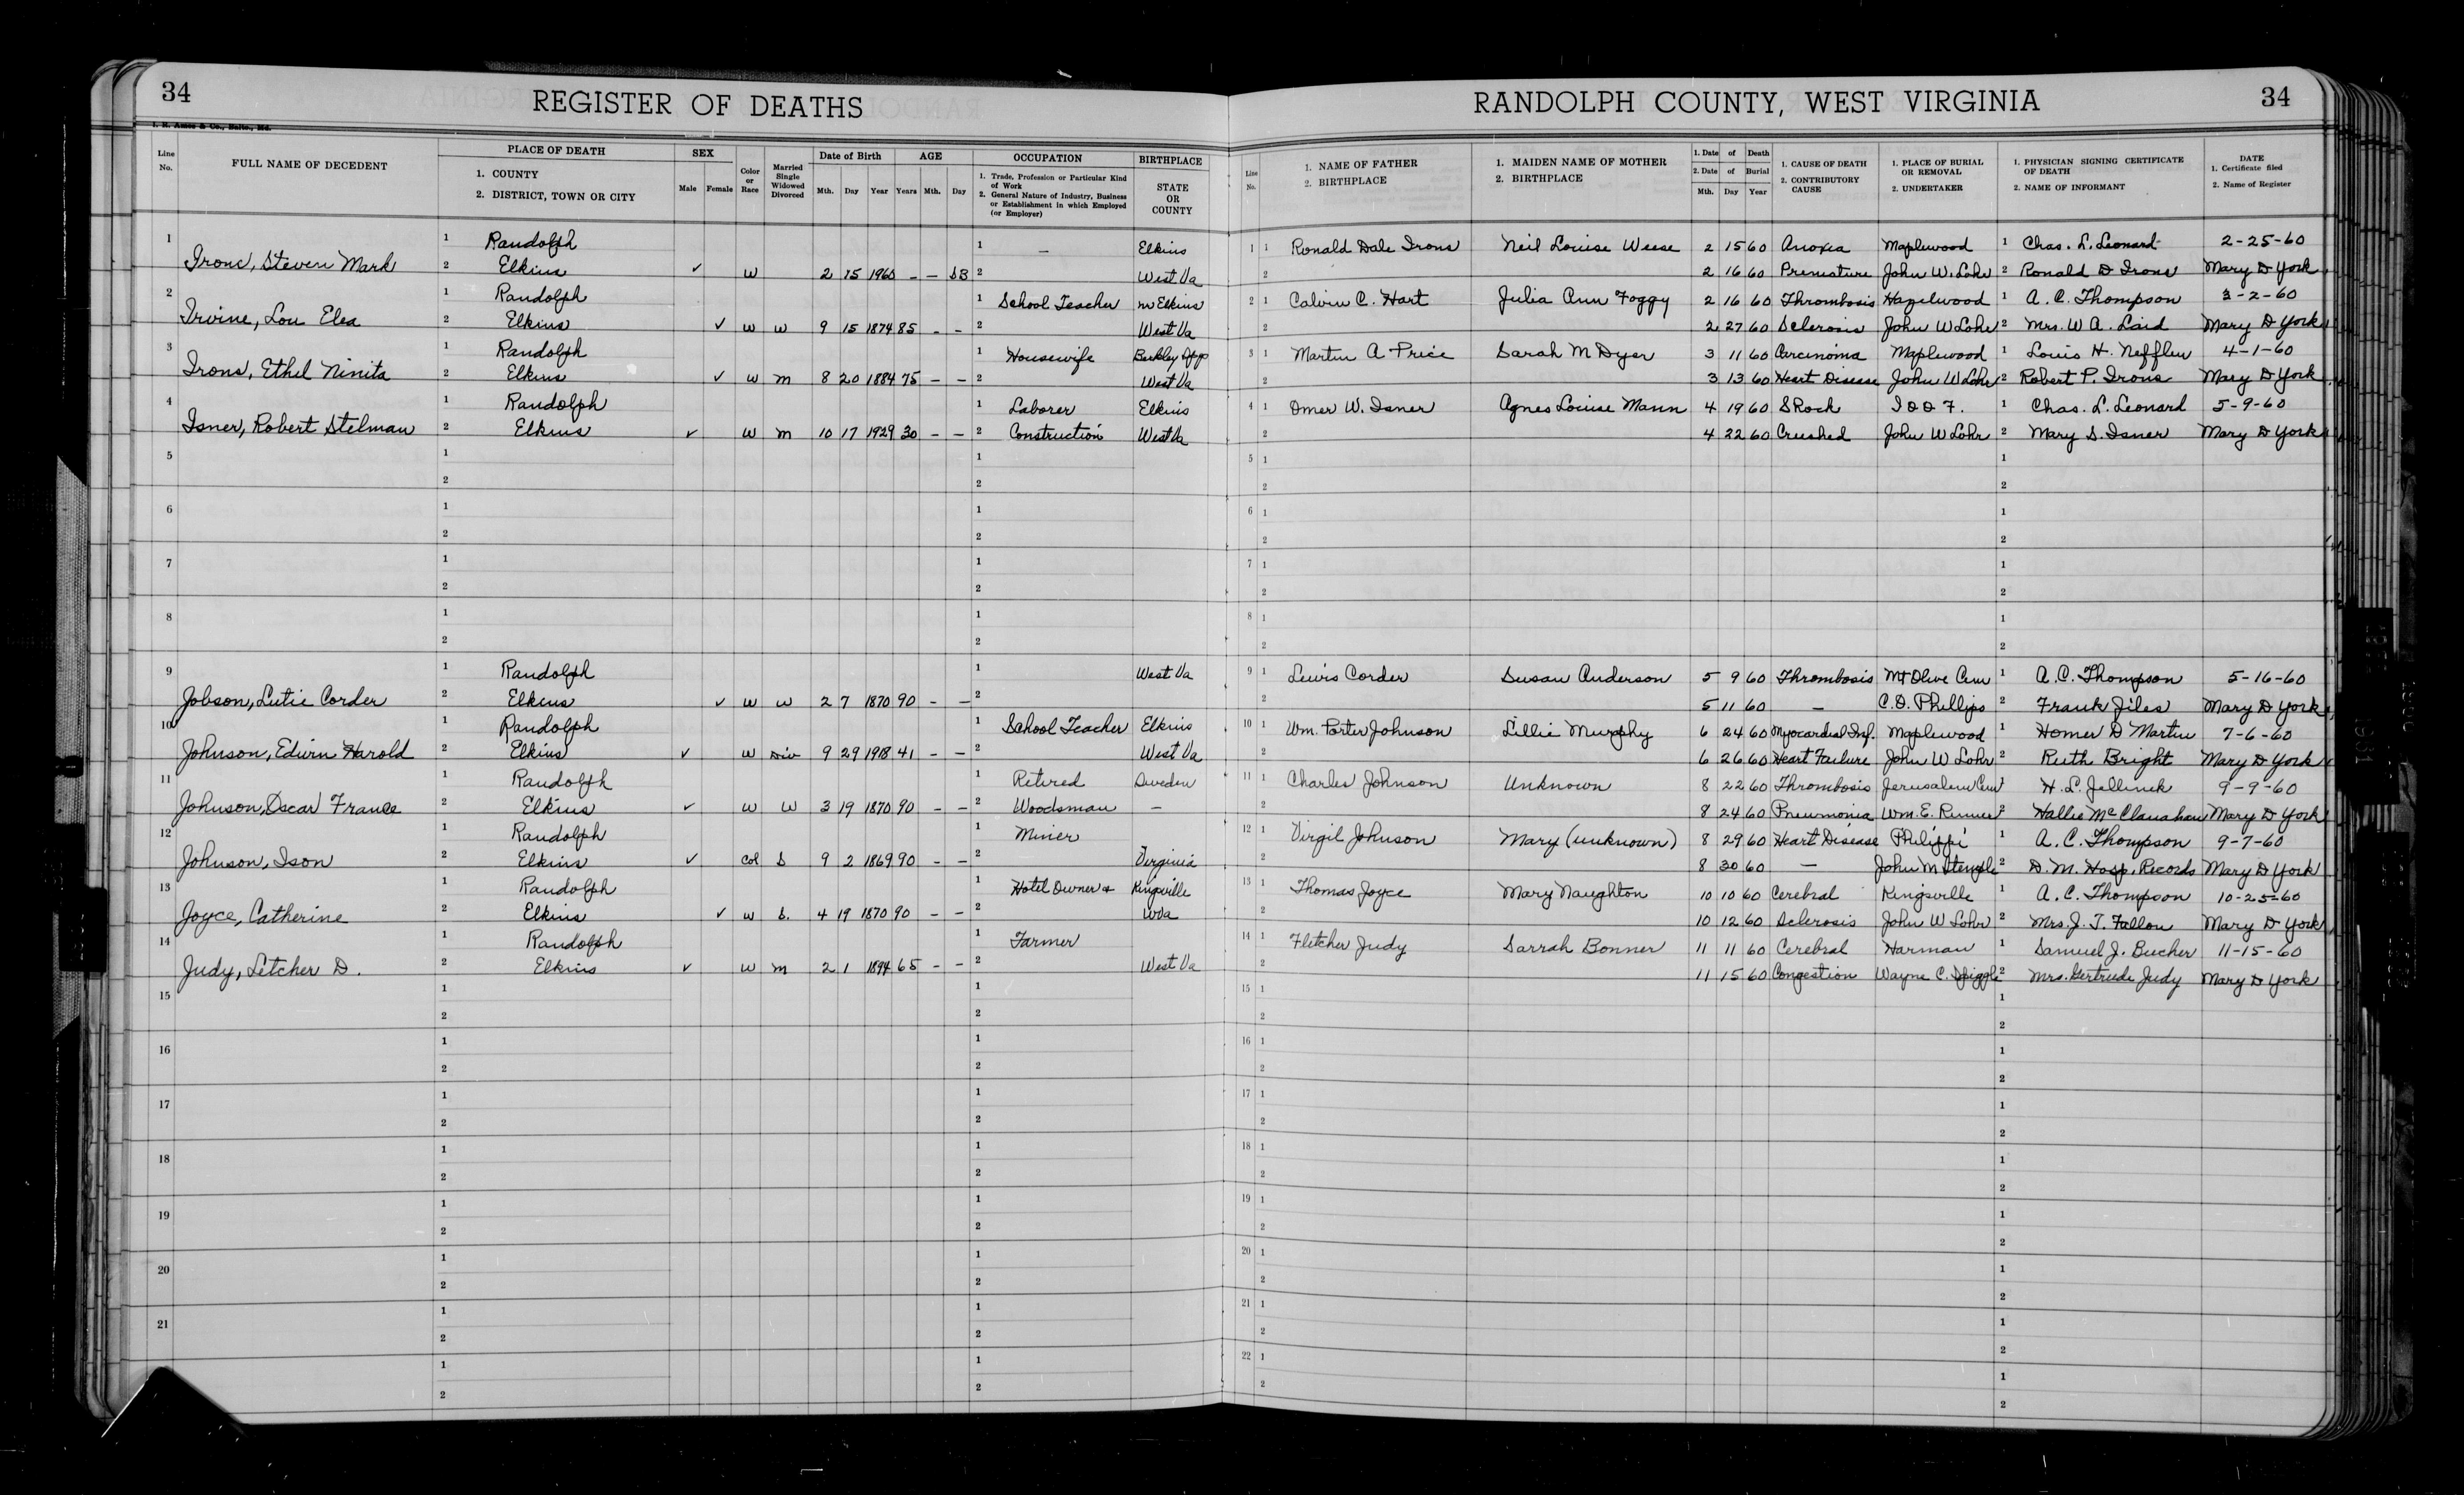 34 REGISTER OF DEATHS RANDOLPH COUNTY, WEST VIRGINIA 34
J. R. Amos & Co., Balto., Md.
Line No. FULL NAME OF DECEDENT PLACE OF DEATH 1. COUNTY 2. DISTRICT, TOWN OR CITY SEX Male Female Color or Race Married Single Widowed Divorced Date of Birth Mth. Day Year AGE Years Mth. Day OCCUPATION 1. Trade, Profession or Particular Kind of Work 2. General Nature of Industry, Business or Establishment in which Employed (or Employer) BIRTHPLACE STATE OR COUNTY Line No. 1. NAME OF FATHER 2. BIRTHPLACE 1. MAIDEN NAME OF MOTHER 2. BIRTHPLACE 1. Date of Death 2. Date of Burial Mth. Day Year 1. CAUSE OF DEATH 2. CONTRIBUTORY CAUSE 1. PLACE OF BURIAL OR REMOVAL 2. UNDERTAKER 1. PHYSICIAN SIGNING CERTIFICATE OF DEATH 2. NAME OF INFORMANT DATE 1. Certificate filed 2. Name of Register
1 1 Randolph 1 – Elkins 1 1 Ronald Dale Irons Neil Louise Weese 2 15 60 Anoxia Maplewood 1 Chas. L. Leonard 2-25-60
Irons, Steven Mark 2 Elkins ✓ W 2 15 1960 – – SB 2 West Va 2 2 16 60 Premature John W. Lohr 2 Ronald D Irons Mary D York
2 1 Randolph 1 School Teacher nr Elkins 2 1 Calvin C. Hart Julia Ann Foggy 2 16 60 Thrombosis Hazelwood 1 A. C. Thompson 3-2-60
Irvine, Lou Elea 2 Elkins ✓ W W 9 15 1874 85 – – 2 West Va 2 2 27 60 Sclerosis John W Lohr 2 Mrs. W A. Laid Mary D York
3 1 Randolph 1 Housewife 3 1 Martin A Price Sarah M Dyer 3 11 60 Carcinoma Maplewood 1 Louis H. Nefflen 4-1-60
Irons, Ethel Ninita 2 Elkins ✓ W M 8 20 1884 75 – – 2 West Va 2 3 13 60 Heart Disease John W Lohr 2 Robert P. Irons Mary D York
4 1 Randolph 1 Laborer Elkins 4 1 Omer W. Isner Agnes Louise Mann 4 19 60 Shock I O O F. 1 Chas. L. Leonard 5-9-60
Isner, Robert Stelman 2 Elkins ✓ W M 10 17 1929 30 – – 2 Construction West Va 2 4 22 60 Crushed John W Lohr 2 Mary S. Isner Mary D York
5 1 1 5 1 1
2 2 2 2
6 1 1 6 1 1
2 2 2 2
7 1 1 7 1 1
2 2 2 2
8 1 1 8 1 1
2 2 2 2
9 1 Randolph 1 West Va 9 1 Lewis Corder Susan Anderson 5 9 60 Thrombosis Mt Olive Cem 1 A. C. Thompson 5-16-60
Jobson, Lutie Corder 2 Elkins ✓ W W 2 7 1870 90 – – 2 2 5 11 60 – C. D. Phillips 2 Frank Jiles Mary D York
10 1 Randolph 1 School Teacher Elkins 10 1 Wm. Porter Johnson Lillie Murphy 6 24 60 Myocardial Inf. Maplewood 1 Homer D Martin 7-6-60
Johnson, Edwin Harold 2 Elkins ✓ W Div 9 29 1918 41 – – 2 West Va 2 6 26 60 Heart Failure John W Lohr 2 Ruth Bright Mary D York
11 1 Randolph 1 Retired Sweden 11 1 Charles Johnson Unknown 8 22 60 Thrombosis Jerusalem Cem 1 H. L. Jellinek 9-9-60
Johnson, Oscar France 2 Elkins ✓ W W 3 19 1870 90 – – 2 Woodsman – 2 8 24 60 Pneumonia Wm. E. Runner 2 Hallie McClanahan Mary D York
12 1 Randolph 1 Miner 12 1 Virgil Johnson Mary (unknown) 8 29 60 Heart Disease Philippi 1 A. C. Thompson 9-7-60
Johnson, Ison 2 Elkins ✓ Col S 9 2 1869 90 – – 2 Virginia 2 8 30 60 – John M Stemple 2 D. M. Hosp. Records Mary D York
13 1 Randolph 1 Hotel Owner + Kingsville 13 1 Thomas Joyce Mary Naughton 10 10 60 Cerebral Kingsville 1 A. C. Thompson 10-25-60
Joyce, Catherine 2 Elkins ✓ W S. 4 19 1870 90 – – 2 WVa 2 10 12 60 Sclerosis John W Lohr 2 Mrs. J. T. Fallon Mary D York
14 1 Randolph 1 Farmer 14 1 Fletcher Judy Sarrah Bonner 11 11 60 Cerebral Harman 1 Samuel J. Bucher 11-15-60
Judy, Letcher D. 2 Elkins ✓ W M 2 1 1894 65 – – 2 West Va 2 11 15 60 Congestion Wayne C. Spiggle 2 Mrs. Gertrude Judy Mary D York
15 1 1 15 1 1
2 2 2 2
16 1 1 16 1 1
2 2 2 2
17 1 1 17 1 1
2 2 2 2
18 1 1 18 1 1
2 2 2 2
19 1 1 19 1 1
2 2 2 2
20 1 1 20 1 1
2 2 2 2
21 1 1 21 1 1
2 2 2 2
1 1 22 1 1
2 2 2 2